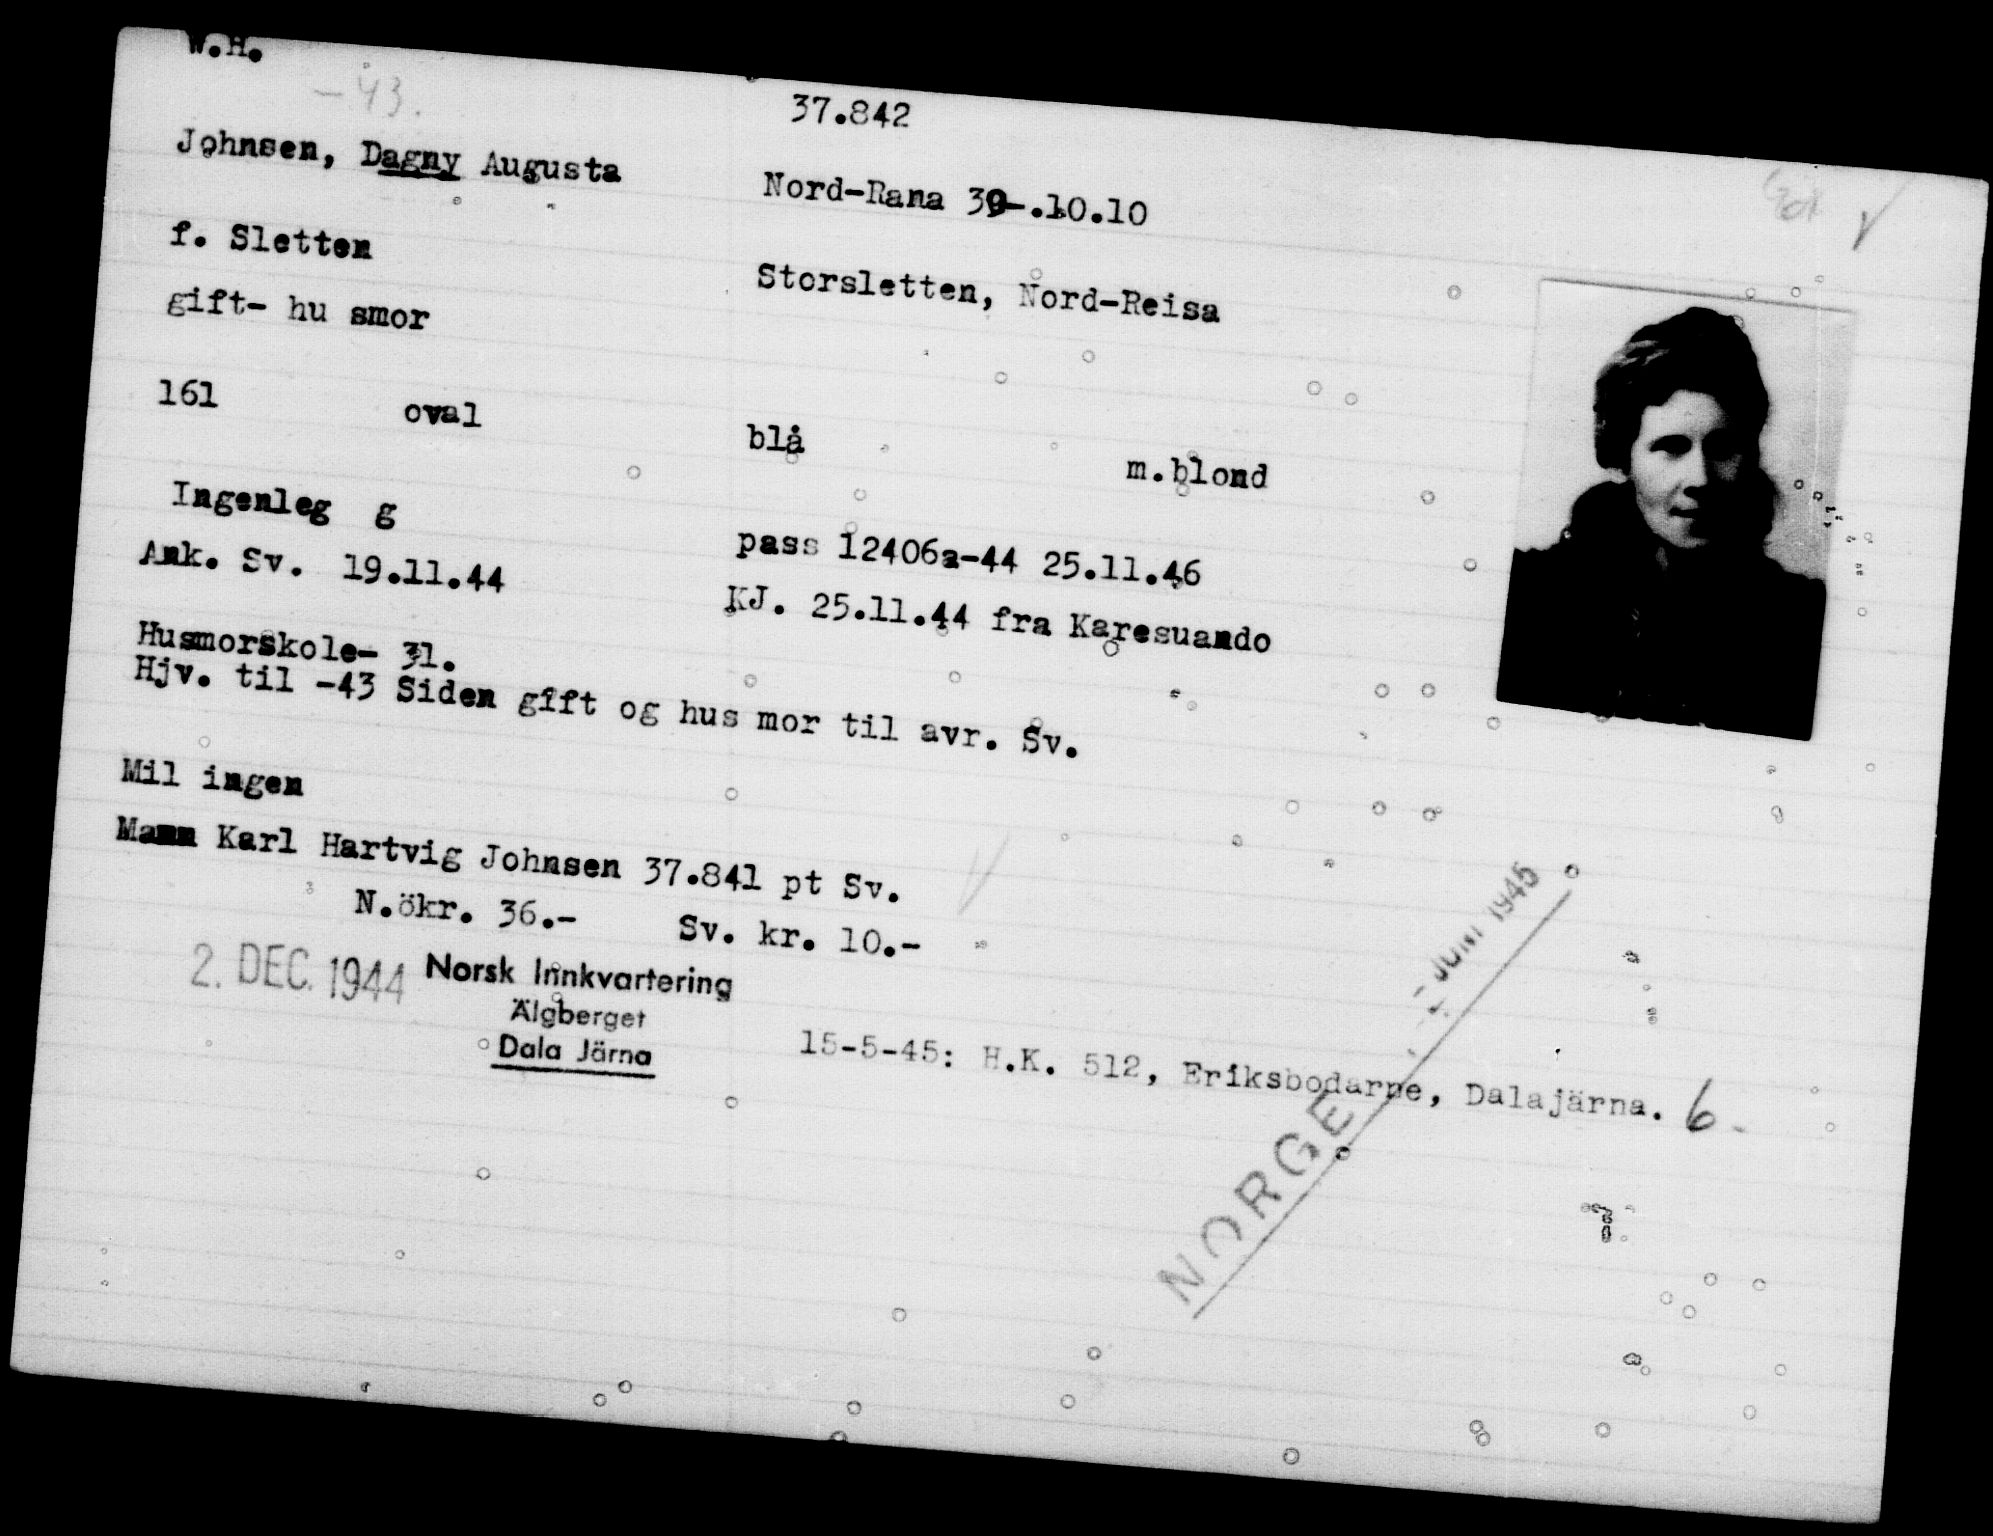 W.H.
-43.
37.842
Johnsen, Dagny Augusta
Nord-Rana 30-.10.10
f. Sletten
Storsletten, Nord-Reisa
gift- hu smor
161 oval blå m.blond
Ingenleg g
pass 12406a-44 25.11.46
Ank. Sv. 19.11.44
KJ. 25.11.44 fra Karesuando
Husmorskole- 31.
Hjv. til -43 Siden gift og hus mor til avr. Sv.
Mil ingen
Mann Karl Hartvig Johnsen 37.841 pt Sv.
N.ökr. 36.- Sv. kr. 10.-
2. DEC. 1944
Norsk Innkvartering
Älgberget
Dala Järna
15-5-45: H.K. 512, Eriksbodarne, Dalajärna. 6
JUNI 1945
NORGE